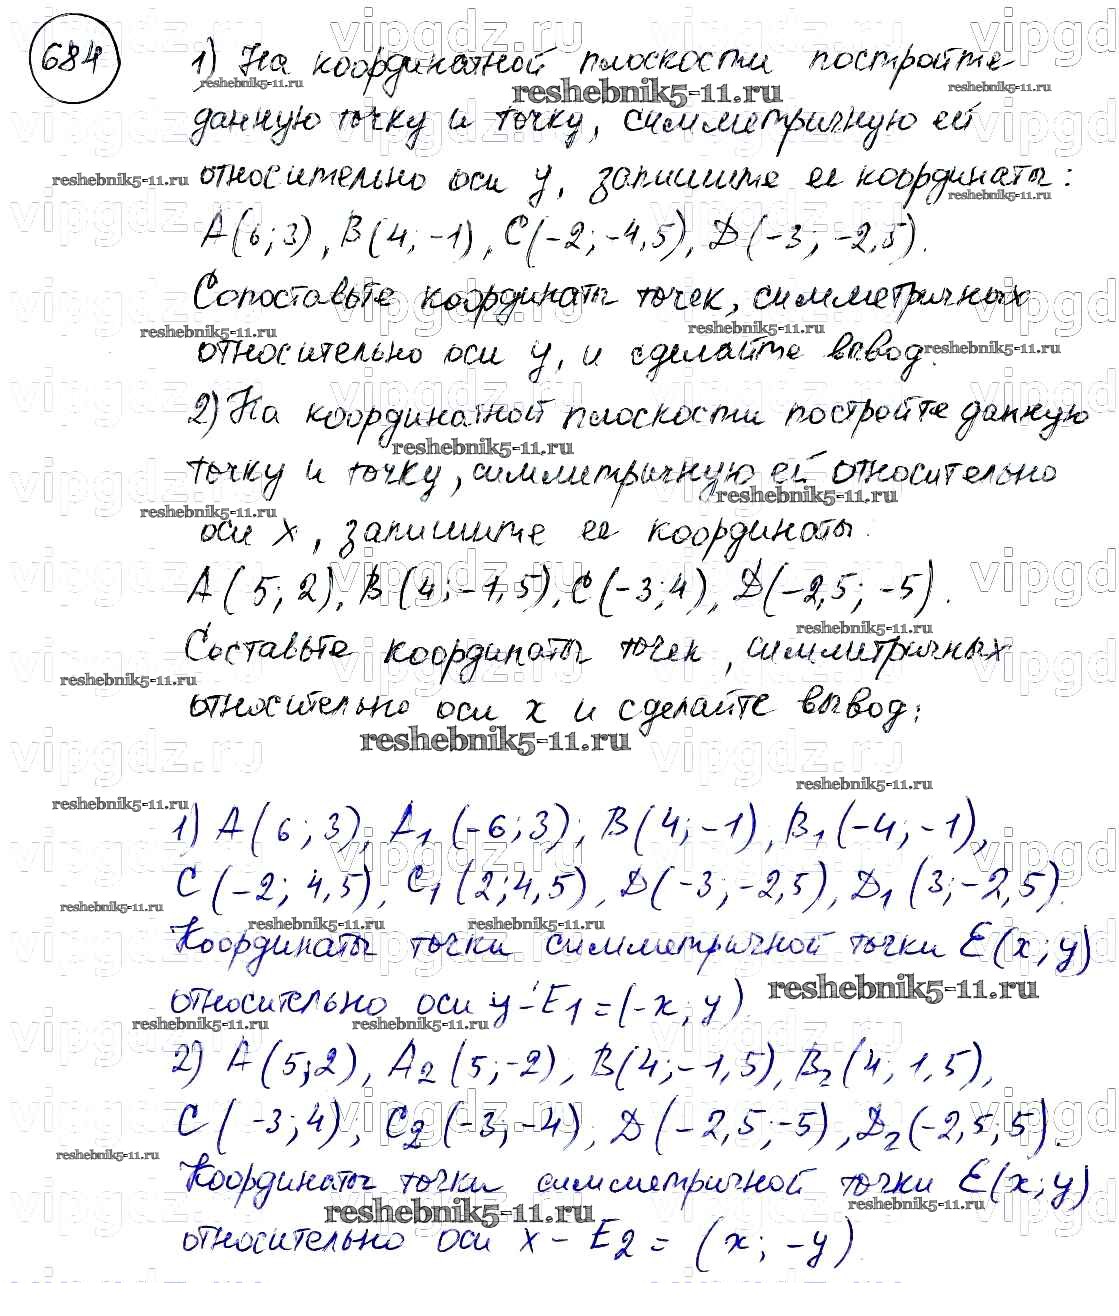 684
1) На координатной плоскости постройте
данную точку и точку, симметричную ей
относительно оси y, запишите ее координаты:
A(6; 3), B(4; -1), C(-2; -4,5), D(-3; -2,5).
Сопоставьте координаты точек, симметричных
относительно оси y, и сделайте вывод.
2) На координатной плоскости постройте данную
точку и точку, симметричную ей относительно
оси x, запишите ее координаты.
A(5; 2), B(4; -1,5), C(-3; 4), D(-2,5; -5).
Составьте координаты точек, симметричных
относительно оси x и сделайте вывод:
reshebnik5-11.ru
1) A(6; 3), A₁(-6; 3); B(4; -1), B₁(-4; -1),
C(-2; 4,5), C₁(2; 4,5), D(-3; -2,5), D₁(3; -2,5).
Координаты точки симметричной точки E(x; y)
относительно оси y - E₁ = (-x; y)
2) A(5; 2), A₂(5; -2), B(4; -1,5), B₂(4; 1,5),
C(-3; 4), C₂(-3; -4), D(-2,5; -5), D₂(-2,5; 5).
Координаты точки симметричной точки E(x; y)
относительно оси x - E₂ = (x; -y)
vipgdz.ru